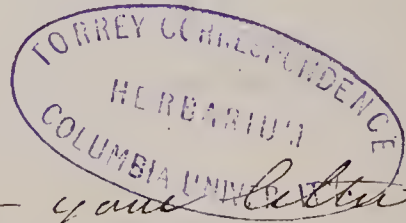 TORREY CORRESPONDENCE
HERBARIUM
COLUMBIA UNIVERSITY
- your letter